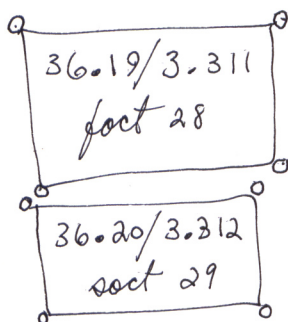 36.19/3.311
foct 28
36.20/3.312
soct 29